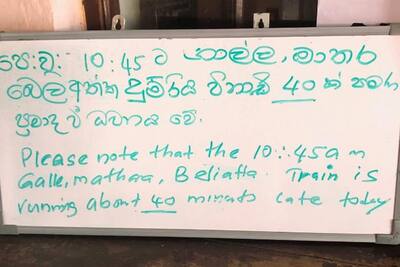 පෙ:ව: 10:45 ට ගාල්ල, මාතර
බෙලිඅත්ත දුම්රිය විනාඩි 40 ක් පමණ
ප්‍රමාද වී ධාවනය වේ.
Please note that the 10:45 a m
Galle, mathara, Beliatta Train is
running about 40 minuts late today